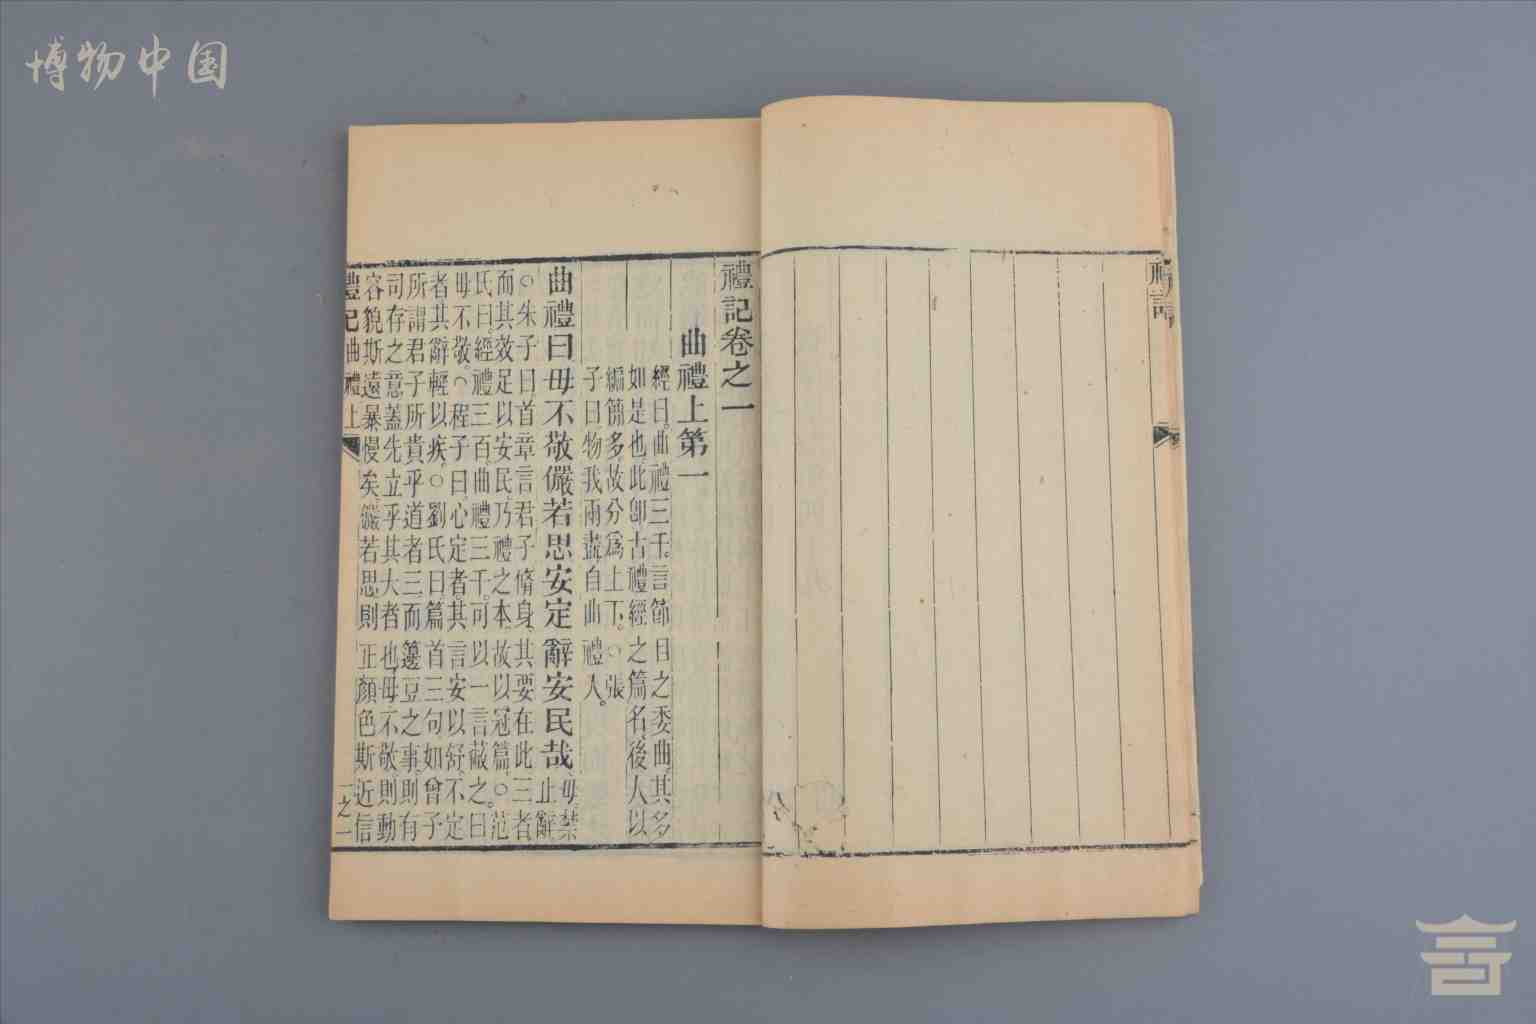 博物中国
禮記
禮記卷之一
曲禮上第一
經曰。曲禮三千。言節目之委曲。其多
如是也。此卽古禮經之篇名。後人以
編簡多。故分爲上下。○張
子曰物我兩盡。自曲禮入。
曲禮曰毋不敬儼若思安定辭安民哉
毋。禁
止辭
○朱子曰。首章言君子脩身。其要在此三者
而其效足以安民。乃禮之本。故以冠篇。○范
氏曰。經禮三百。曲禮三千。可以一言蔽之。曰
毋不敬。○程子曰。心定者。其言安以舒。不定
者。其辭輕以疾。○劉氏曰。篇首三句。如曾子
所謂君子所貴乎道者三。而籩豆之事。則有
司存之意。蓋先立乎其大者也。毋不敬。則動
容貌斯遠暴慢矣。儼若思。則正顏色斯近信
禮記曲禮上
一之一